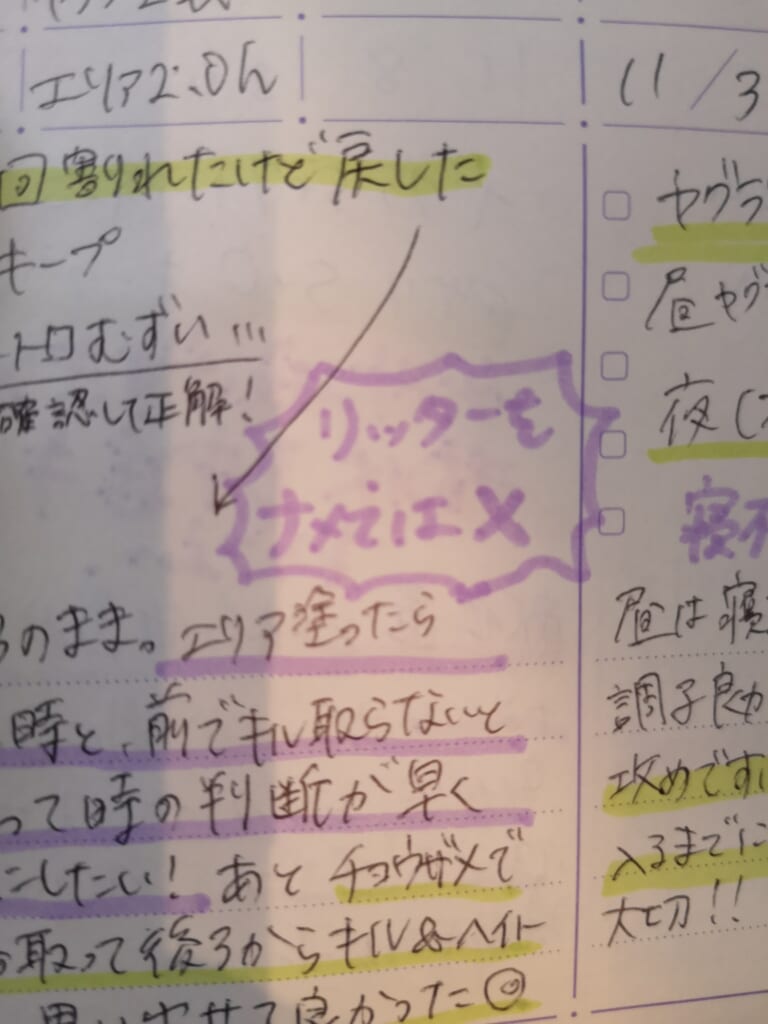 エリア2.0h
回割れたけど戻した
キープ
トロむずい…
確認して正解!
リッターを
ナメては×
のまま。エリア塗ったら
時と、前でキル取らないと
って時の判断が早く
にしたい!あとチョウザメで
取って後ろからキル&ヘイト
良かった
11/3
ヤグラ
昼ヤグ
夜(
寝不
昼は寝
調子良か
攻めです
入るまでに
大切!!